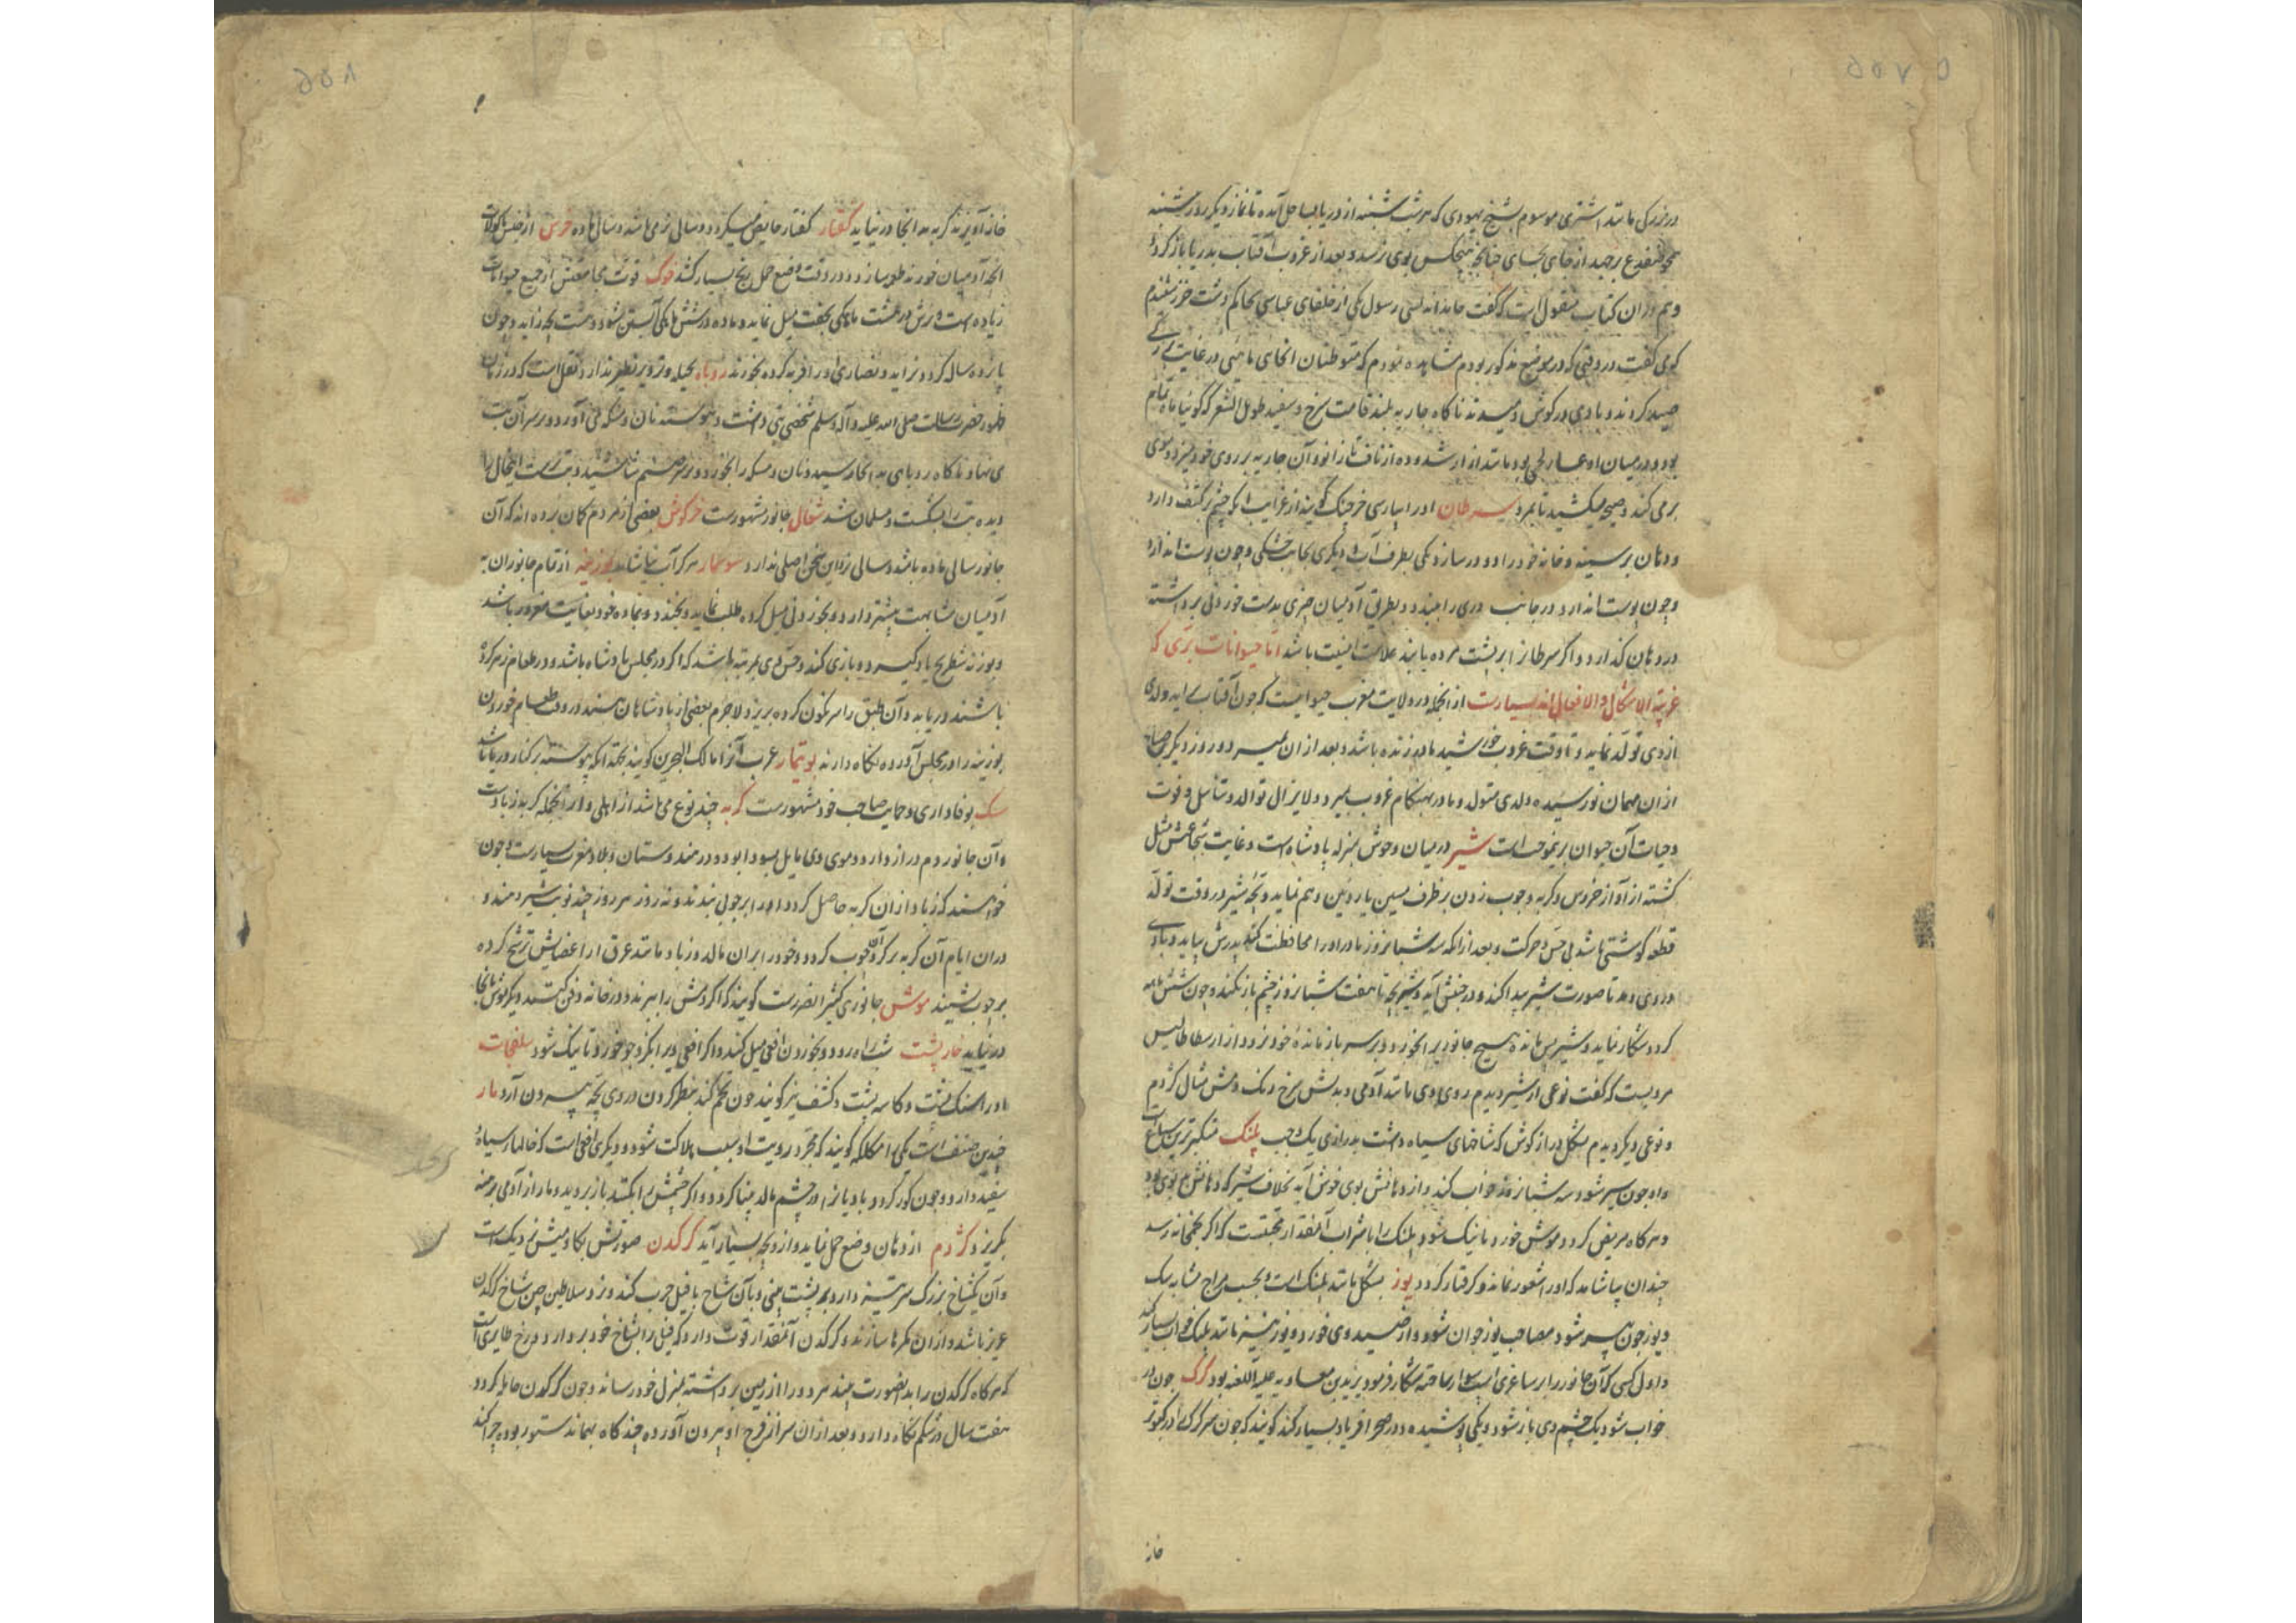 در بزرگی مانند اشتری موسوم بشیخ یهودی که هر شب شنبه از دریا بساحل آمده تا نماز دیگر روز شنبه
همچو ضفدع برجهد از جای بجای چنانچه هیچکس بوی نرسد و بعد از غروب آفتاب بدریا باز کردد
و هم در آن کتاب منقول است که گفت رسول یکی از خلفای عباسی بحاکم دشت خزر شنیدم
که وی گفت در وقتی که در موضع مذکور بودم مشاهده نمودم که متوطنان آنجای ماهیی در غایت بزرگی
صید کردند و بادی در کوش او میدمیدند ناکاه جاریه بلند قامت سرخ و سفید طویل الشعر که کوئیا ماه تمام
بود و در میان او ازار لحمی بود مانند ازار شد و ده از ناف تا زانو و آن جاریه بر روی خود میزد و موی
بر می کند و صیحه میکشید تا بمرد سرطان او را بپارسی خرچنک کویند از غرایب آنکه چشم بر کتف دارد
و دهان بر سینه و خانه خود را دو در سازد یکی بطرف آب و دیگری بجانب خشکی و چون پوست اندازد
و چون پوست اندازد در جانب دری را ببندد و بطریق آدمیان چیزی بدست خوردنی برداشته
در دهان کذارد و اگر سرطانرا بر پشت مرده یابند علامت امنیت باشد اما حیوانات بری که
غریبة الاشکال والافعال اند بسیارست از آنجمله در ولایت مغرب حیوانیست که چون آفتاب برآید ولدی
از وی تولد نماید و تا وقت غروب خورشید مادر زنده باشد و بعد از آن بمیرد و روز دیگر صباح
از آن مهمان نو رسیده ولدی متولد و مادر بهنکام غروب بمیرد و لا یزال توالد و تناسل و فوت
و حیات آن حیوان برینموجب است شیر در میان وحوش بمنزله پادشاه است و غایت شجاعتش مثل
کشته از آواز خروس و گربه و چوب زدن بر ظرف مسین یا روئین وهم نماید و بچه شیر در وقت تولد
قطعه کوشتی باشد بی حس و حرکت و بعد از آنکه سه شبانروز مادر او را محافظت کند پدرش بیاید و بادی
در وی دمد تا صورت شیر پیدا کند و در جنبش آید و شیر بچه تا هفت شبانروز چشم باز نکند و چون شش ماهه
کردد شکار نماید و شیر پس مانده هیچ جانور را نخورد و بر سر باز مانده خود نرود و از ارسطاطالیس
مرویست که گفت نوعی از شیر دیدم روی وی مانند آدمی و بدنش سرخ رنک و دمش مثال کژدم
و نوعی دیگر دیدم بشکل دراز کوش که شاخهای سیاه داشت بدرازی یک وجب پلنک متکبرترین سباع است
و او چون سیر شود سه شبانروز خواب کند و از دهانش بوی خوش آید بخلاف شیر که دهانش بد بوی بود
و هر کاه مریض کردد موش خورد تا نیک شود و پلنک را با شراب آنمقدار محبتست که اگر بخمخانه رسد
چندان بیاشامد که او را شعور نماند و کرفتار کردد یوز بشکل مانند پلنک است و بحسب مزاج مشابه سک
و یوز چون پیر شود مصاحب یوز جوان شود و از صید وی خورد و یوز نیز مانند پلنک خواب بسیار کند
و اول کسی که آن جانور را بر ساغری اسب سوار ساخته شکار فرمود یزید بن معاویه علیه اللعنه بود کرک چون در
خواب شود یک چشم وی باز شود و یکی پوشیده و در صحرا فریاد بسیار کند کویند که چون سر کرک را در کبوتر
خانه
خانه آویزند گربه به آنجا در نیاید کفتار کفتار حایض میکردد و سالی نر می باشد و سالی ماده خرس از جنس ماکولات
آنچه آدمیان خورند طور سازد و در وقت وضع حمل رنج بسیار کشد خوک قوت مجامعتش از جمیع حیوانات
زیاده است و نرش در هشت ماهکی بجفت میل نماید و ماده در شش ماهکی آبستن شود و بیست بچه زاید و چون
پانزده ساله کردد نزاید و نصاری او را فربه کرده بخورند روباه بحیله و تزویر نظیر ندارد نقل است که در زمان
ظهور حضرت رسالت صلی الله علیه و آله و سلم شخصی بتی داشت و پیوسته نان و مسکه می آورد و بر سر آن بت
می نهاد ناکاه روباهی به آنجا رسید و نان و مسکه را بخورد و بر سر صنم شاشید و بت پرست اینحال را
دیده بت را بشکست و مسلمان شد شغال جانور مشهورست خرکوش بعضی از مردم کمان برده اند که آن
جانور سالی ماده باشد و سالی نر و این سخن اصلی ندارد سوسمار هرکز آب نیاشامد بوزینه از تمام جانوران به
آدمیان مشابهت بیشتر دارد و بخوردنی میل کرده طلب نماید و بخندد و بماده خود بغایت غیور باشد
و بوزنه شطرنج یاد کیرد و بازی کند و حس وی بمرتبه باشد که اگر در مجلس پادشاه باشد و در طعام زهر کرده
باشند دریابد و آن طبق را سرنکون کرده بریزد لاجرم بعضی از پادشاهان هند در وقت طعام خوردن
بوزینه را در مجلس آورده نکاه دارند بوتیمار عرب آنرا مالک الحزین کویند بجهة آنکه پیوسته بر کنار دریا باشد
سک بوفاداری و حمایت صاحب خود مشهورست گربه چند نوع می باشد از اهلی و از آنجمله گربه زبادست
و آن جانور دم دراز دارد و موی وی مایل بسواد بود و در هندوستان و بلاد مغرب بسیارست و چون
خواهند که زباد از آن گربه حاصل کردد او را بر چوبی بندند و نه روز هر روز چند نوبت شیر دهند و
در آن ایام آن گربه بر کرد آن چوب کردد و خود را بر آن مالد و زباد مانند عرق از اعضایش ترشح کرده
بر چوب نشیند موش جانوری کثیر الضررست کویند که اگر دمش را ببرند و در خانه دفن کنند دیگر موش بآنجا
در نیاید خارپشت شب راه رود و بخوردن افعی میل کند و اگر افعی ویرا بگزد جو خورد تا نیک شود سلحفات
او را سنک پشت و کاسه پشت و کشف نیز کویند چون تخم کند بنظر کردن در وی بچه بیرون آرد مار
چندین صنف است یکی را مکلله کویند که بمجرد رویت او سبب هلاکت شود و دیگری افعی است که خالهای سیاه و
سفید دارد و چون کور کردد بادیان را در چشم مالد بینا کردد و اگر چشمش را بکنند باز بروید و مار از آدمی برهنه
بگریزد کژدم از دهان وضع حمل نماید و از وی بچه بسیار آید کرکدن صورتش بکاومیش نزدیک است
و آن یکشاخ بزرک سرتیز دارد بر پشت بینی و بآن شاخ با فیل حرب کند و نزد سلاطین چین شاخ کرکدن
عزیز باشد و از آن کمرها سازند و کرکدن آنمقدار قوت دارد که فیل را بشاخ خود بر دارد و رخ طایریست
که هر کاه کرکدن را بدینصورت بیند هر دو را از زمین برداشته بمنزل خود رساند و چون کرکدن حامله کردد
هفت سال در شکم نکاه دارد و بعد از آن سر از فرج او بیرون آورده چند کاه بهمان دستور بوده چرا کند